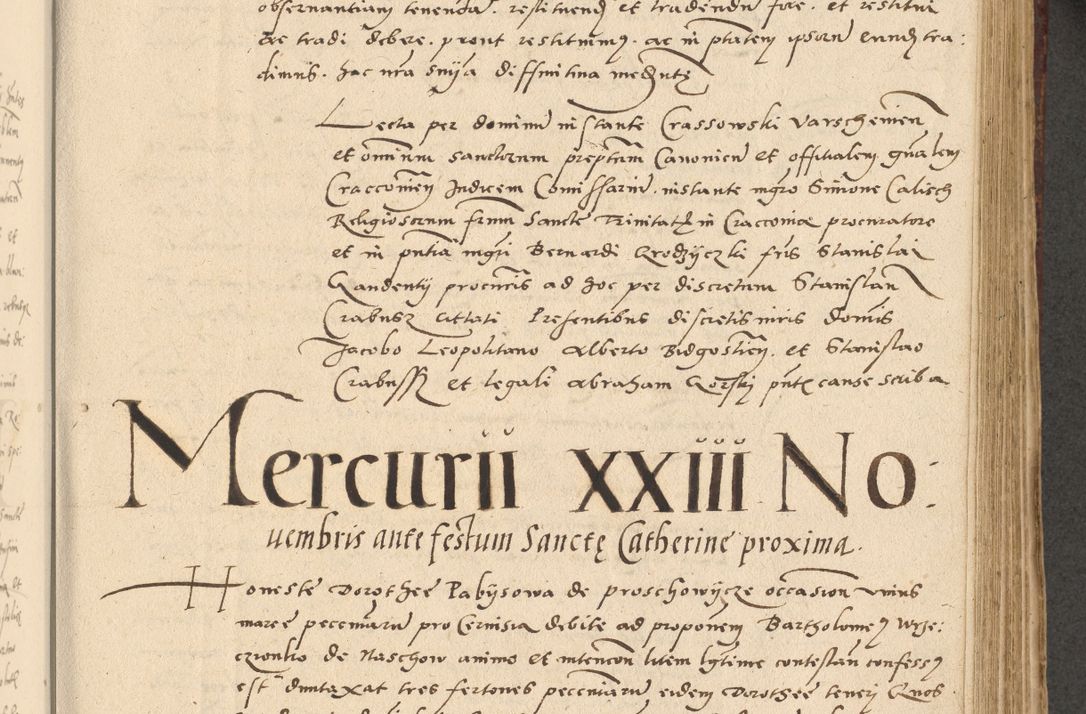 observantiam tenenda. restituend et tradendu fore. et restitui
ac tradi debere. prout restituimus. ac in ptatem ipsoru eund tra:
dimus. hac nra snija diffinitiua mediante
Lecta per dominu instante Crassowski Varschewien
et ominum sanctorum preptam Canonicu et offitialem gnalem
Craccomen Judicem Comissariu. instante mgro Simone Calisch
Religiosorum frum Sancte Trinitatis in Cracconia procuratore
et in pntia mgri Bernardi Grodzyczki fris Stanislai
Gaudentij procuris ad hoc per discretum Stanislau
Crabusz Cittati Presentibus discretis viris Domis
Jacobo Leopolitano Alberto Bidgostien. et Stanislao
Crabussz et legali Abraham Gorski pnte cause scriba
Mercurii xxiii No:
uembris ante festum Sancte Catherine proxima.
Honeste Dorothee Pabijsowa de proschowijcze occasion vnius
marce pecuniaru pro Ceruisia debite ad proponem Bartholomeus Wrze:
czionko de Naschow animo et intencon litem lgtime contestan confessus
est duntaxat tres fertones pecuniaru eidem Dorothee teneri Quos